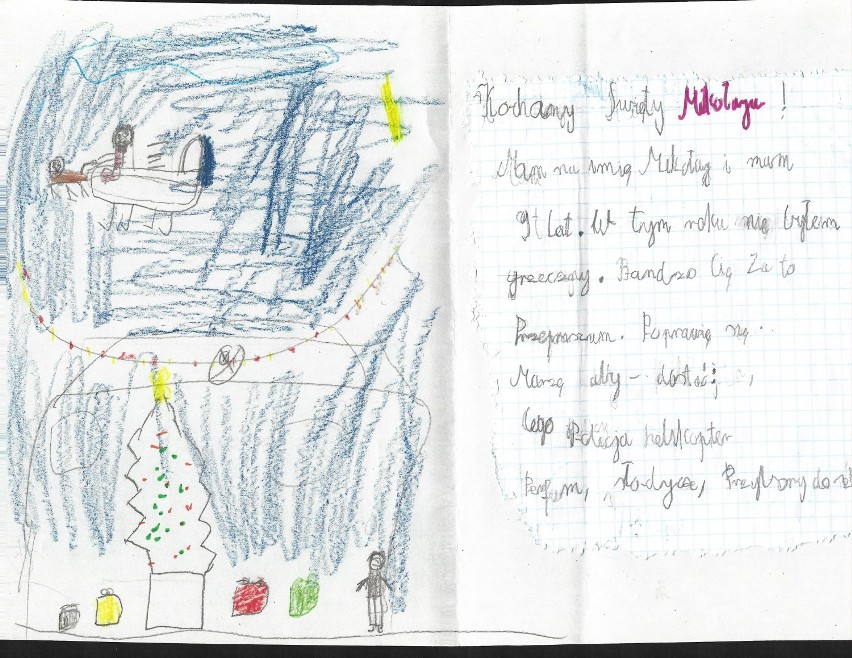 Kochany Święty Mikołaju !
Mam na imię Mikołaj i mam
9 lat. W tym roku nie byłem
grzeczny. Bardzo Cię Za to
Przepraszam. Poprawię się..
Marzę aby - dostać:
lego Policja helikopter
Perfum, słodycze, Przybory do